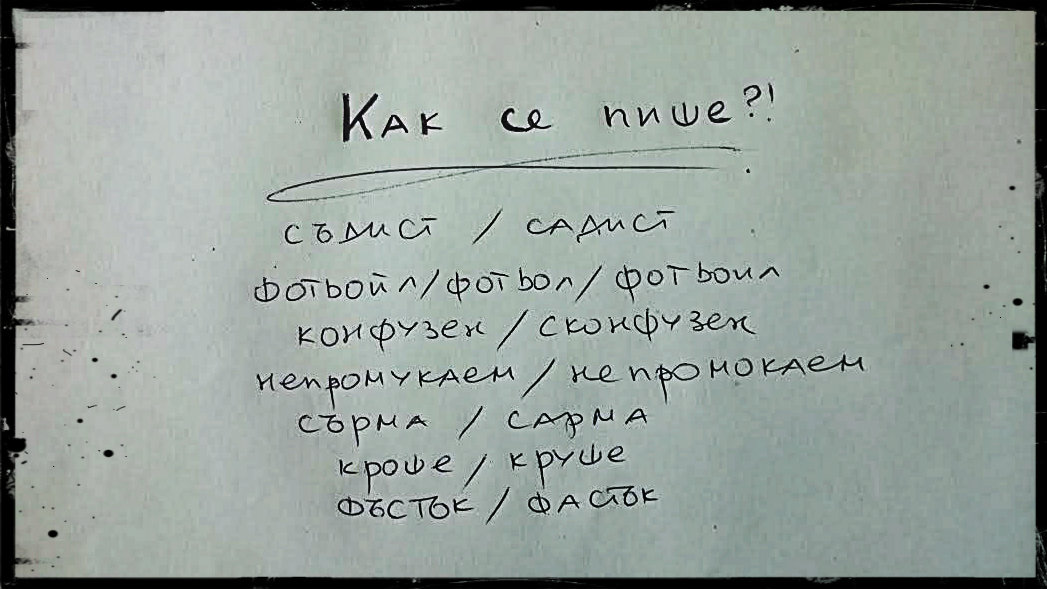 Как се пише?!
съдист / садист
фотьойл/фотьол/фотьоил
конфузен / сконфузен
непромукаем / непромокаем
сърма / сарма
кроше / круше
фъстък / фастък